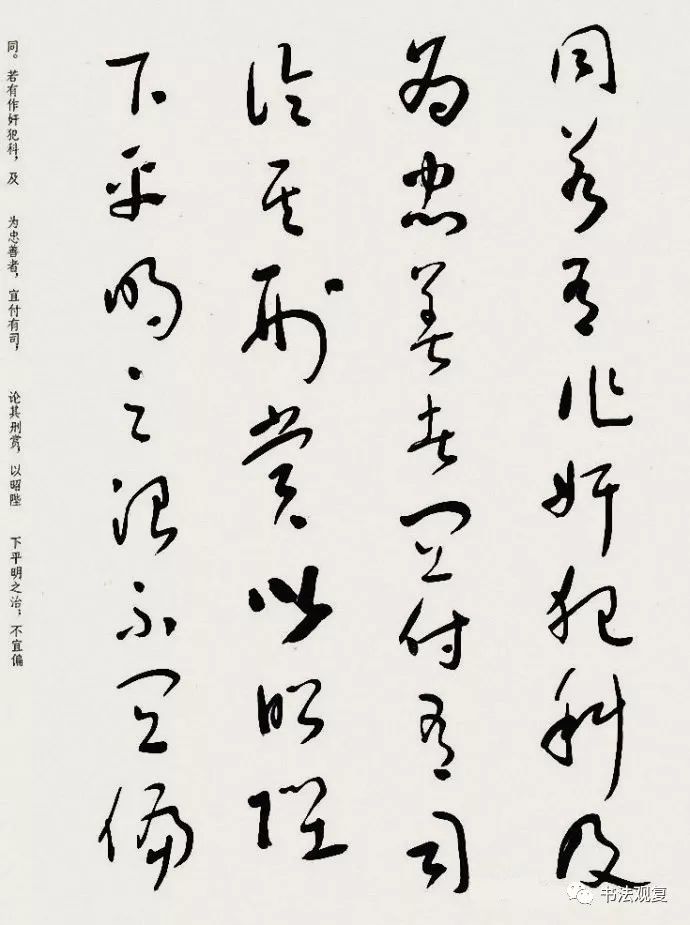 同若有作奸犯科及
为忠善者宜付有司
论其刑赏以昭陛
下平明之治不宜偏
同。若有作奸犯科，及　为忠善者，宜付有司，　论其刑赏，以昭陛　下平明之治；不宜偏
书法观复